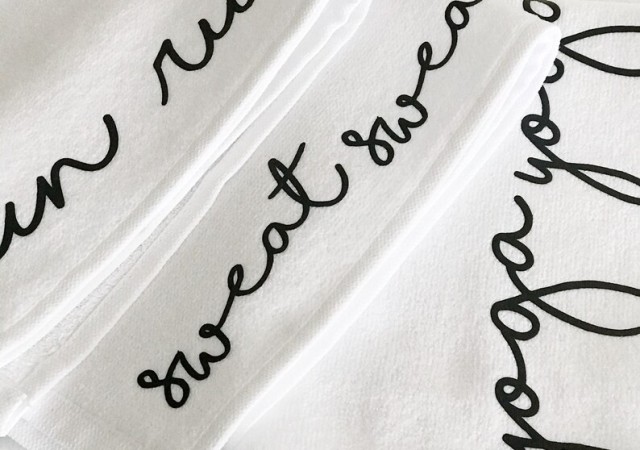 run ru
sweat swea
yoga yog